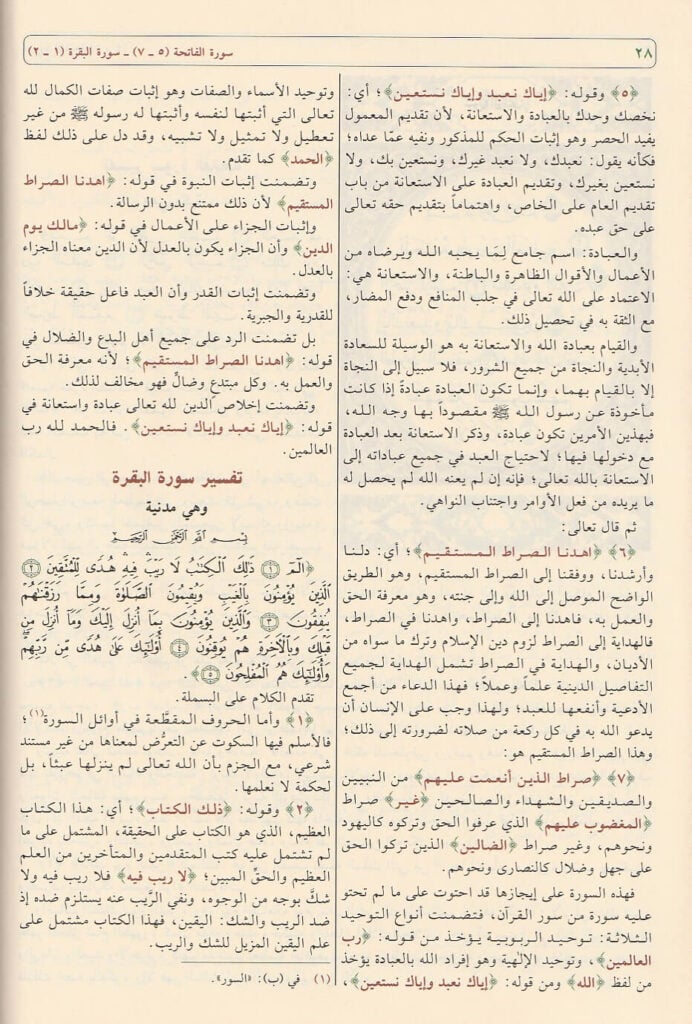 ٢٨
سورة الفاتحة (٥ ـ ٧) ـ سورة البقرة (١ ـ ٢)
﴿٥﴾ وقوله: ﴿إياك نعبد وإياك نستعين﴾؛ أي:
نخصك وحدك بالعبادة والاستعانة، لأن تقديم المعمول
يفيد الحصر وهو إثبات الحكم للمذكور ونفيه عمّا عداه؛
فكأنه يقول: نعبدك، ولا نعبد غيرك، ونستعين بك، ولا
نستعين بغيرك، وتقديم العبادة على الاستعانة من باب
تقديم العام على الخاص، واهتماماً بتقديم حقه تعالى
على حق عبده.
والعبادة: اسم جامع لِمَا يحبه الله ويرضاه من
الأعمال والأقوال الظاهرة والباطنة، والاستعانة هي:
الاعتماد على الله تعالى في جلب المنافع ودفع المضار،
مع الثقة به في تحصيل ذلك.
والقيام بعبادة الله والاستعانة به هو الوسيلة للسعادة
الأبدية والنجاة من جميع الشرور، فلا سبيل إلى النجاة
إلا بالقيام بهما، وإنما تكون العبادة عبادةً إذا كانت
مأخوذة عن رسول الله ﷺ مقصوداً بها وجه الله،
فبهذين الأمرين تكون عبادة، وذكر الاستعانة بعد العبادة
مع دخولها فيها؛ لاحتياج العبد في جميع عباداته إلى
الاستعانة بالله تعالى؛ فإنه إن لم يعنه الله لم يحصل له
ما يريده من فعل الأوامر واجتناب النواهي.
ثم قال تعالى:
﴿٦﴾ ﴿اهدنا الصراط المستقيم﴾؛ أي: دلنا
وأرشدنا، ووفقنا إلى الصراط المستقيم، وهو الطريق
الواضح الموصل إلى الله وإلى جنته، وهو معرفة الحق
والعمل به، فاهدنا إلى الصراط، واهدنا في الصراط،
فالهداية إلى الصراط لزوم دين الإسلام وترك ما سواه من
الأديان، والهداية في الصراط تشمل الهداية لجميع
التفاصيل الدينية علماً وعملاً؛ فهذا الدعاء من أجمع
الأدعية وأنفعها للعبد؛ ولهذا وجب على الإنسان أن
يدعو الله به في كل ركعة من صلاته لضرورته إلى ذلك؛
وهذا الصراط المستقيم هو:
﴿٧﴾ ﴿صراط الذين أنعمت عليهم﴾ من النبيين
والصديقين والشهداء والصالحين ﴿غير﴾ صراط
﴿المغضوب عليهم﴾ الذي عرفوا الحق وتركوه كاليهود
ونحوهم، وغير صراط ﴿الضالين﴾ الذين تركوا الحق
على جهل وضلال كالنصارى ونحوهم.
فهذه السورة على إيجازها قد احتوت على ما لم تحتو
عليه سورة من سور القرآن، فتضمنت أنواع التوحيد
الثلاثة: توحيد الربوبية يؤخذ من قوله: ﴿رب
العالمين﴾، وتوحيد الإلهية وهو إفراد الله بالعبادة يؤخذ
من لفظ ﴿الله﴾ ومن قوله: ﴿إياك نعبد وإياك نستعين﴾،
وتوحيد الأسماء والصفات وهو إثبات صفات الكمال لله
تعالى التي أثبتها لنفسه وأثبتها له رسوله ﷺ من غير
تعطيل ولا تمثيل ولا تشبيه، وقد دل على ذلك لفظ
﴿الحمد﴾ كما تقدم.
وتضمنت إثبات النبوة في قوله: ﴿اهدنا الصراط
المستقيم﴾ لأن ذلك ممتنع بدون الرسالة.
وإثبات الجزاء على الأعمال في قوله: ﴿مالك يوم
الدين﴾ وأن الجزاء يكون بالعدل لأن الدين معناه الجزاء
بالعدل.
وتضمنت إثبات القدر وأن العبد فاعل حقيقة خلافاً
للقدرية والجبرية.
بل تضمنت الرد على جميع أهل البدع والضلال في
قوله: ﴿اهدنا الصراط المستقيم﴾؛ لأنه معرفة الحق
والعمل به. وكل مبتدعٍ وضالٍّ فهو مخالف لذلك.
وتضمنت إخلاص الدين لله تعالى عبادة واستعانة في
قوله: ﴿إياك نعبد وإياك نستعين﴾. فالحمد لله رب
العالمين.
تفسير سورة البقرة
وهي مدنية
بِسْمِ اللَّهِ الرَّحْمَنِ الرَّحِيمِ
﴿الٓمٓ ١ ذَٰلِكَ الْكِتَٰبُ لَا رَيْبَ فِيهِ هُدًى لِّلْمُتَّقِينَ ٢
الَّذِينَ يُؤْمِنُونَ بِالْغَيْبِ وَيُقِيمُونَ الصَّلَوٰةَ وَمِمَّا رَزَقْنَٰهُمْ
يُنفِقُونَ ٣ وَالَّذِينَ يُؤْمِنُونَ بِمَا أُنزِلَ إِلَيْكَ وَمَا أُنزِلَ مِن
قَبْلِكَ وَبِالْآخِرَةِ هُمْ يُوقِنُونَ ٤ أُوْلَٰئِكَ عَلَىٰ هُدًى مِّن رَّبِّهِمْ
وَأُوْلَٰئِكَ هُمُ الْمُفْلِحُونَ ٥﴾.
تقدم الكلام على البسملة.
﴿١﴾ وأما الحروف المقطَّعة في أوائل السورة(١)؛
فالأسلم فيها السكوت عن التعرُّض لمعناها من غير مستند
شرعي، مع الجزم بأن الله تعالى لم ينزلها عبثاً، بل
لحكمة لا نعلمها.
﴿٢﴾ وقوله: ﴿ذلك الكتاب﴾؛ أي: هذا الكتاب
العظيم، الذي هو الكتاب على الحقيقة، المشتمل على ما
لم تشتمل عليه كتب المتقدمين والمتأخرين من العلم
العظيم والحقِّ المبين؛ ﴿لا ريب فيه﴾ فلا ريب فيه ولا
شكَّ بوجه من الوجوه، ونفي الرَّيب عنه يستلزم ضده إذ
ضد الريب والشك: اليقين، فهذا الكتاب مشتمل على
علم اليقين المزيل للشك والريب.
(١) في (ب): «السور».